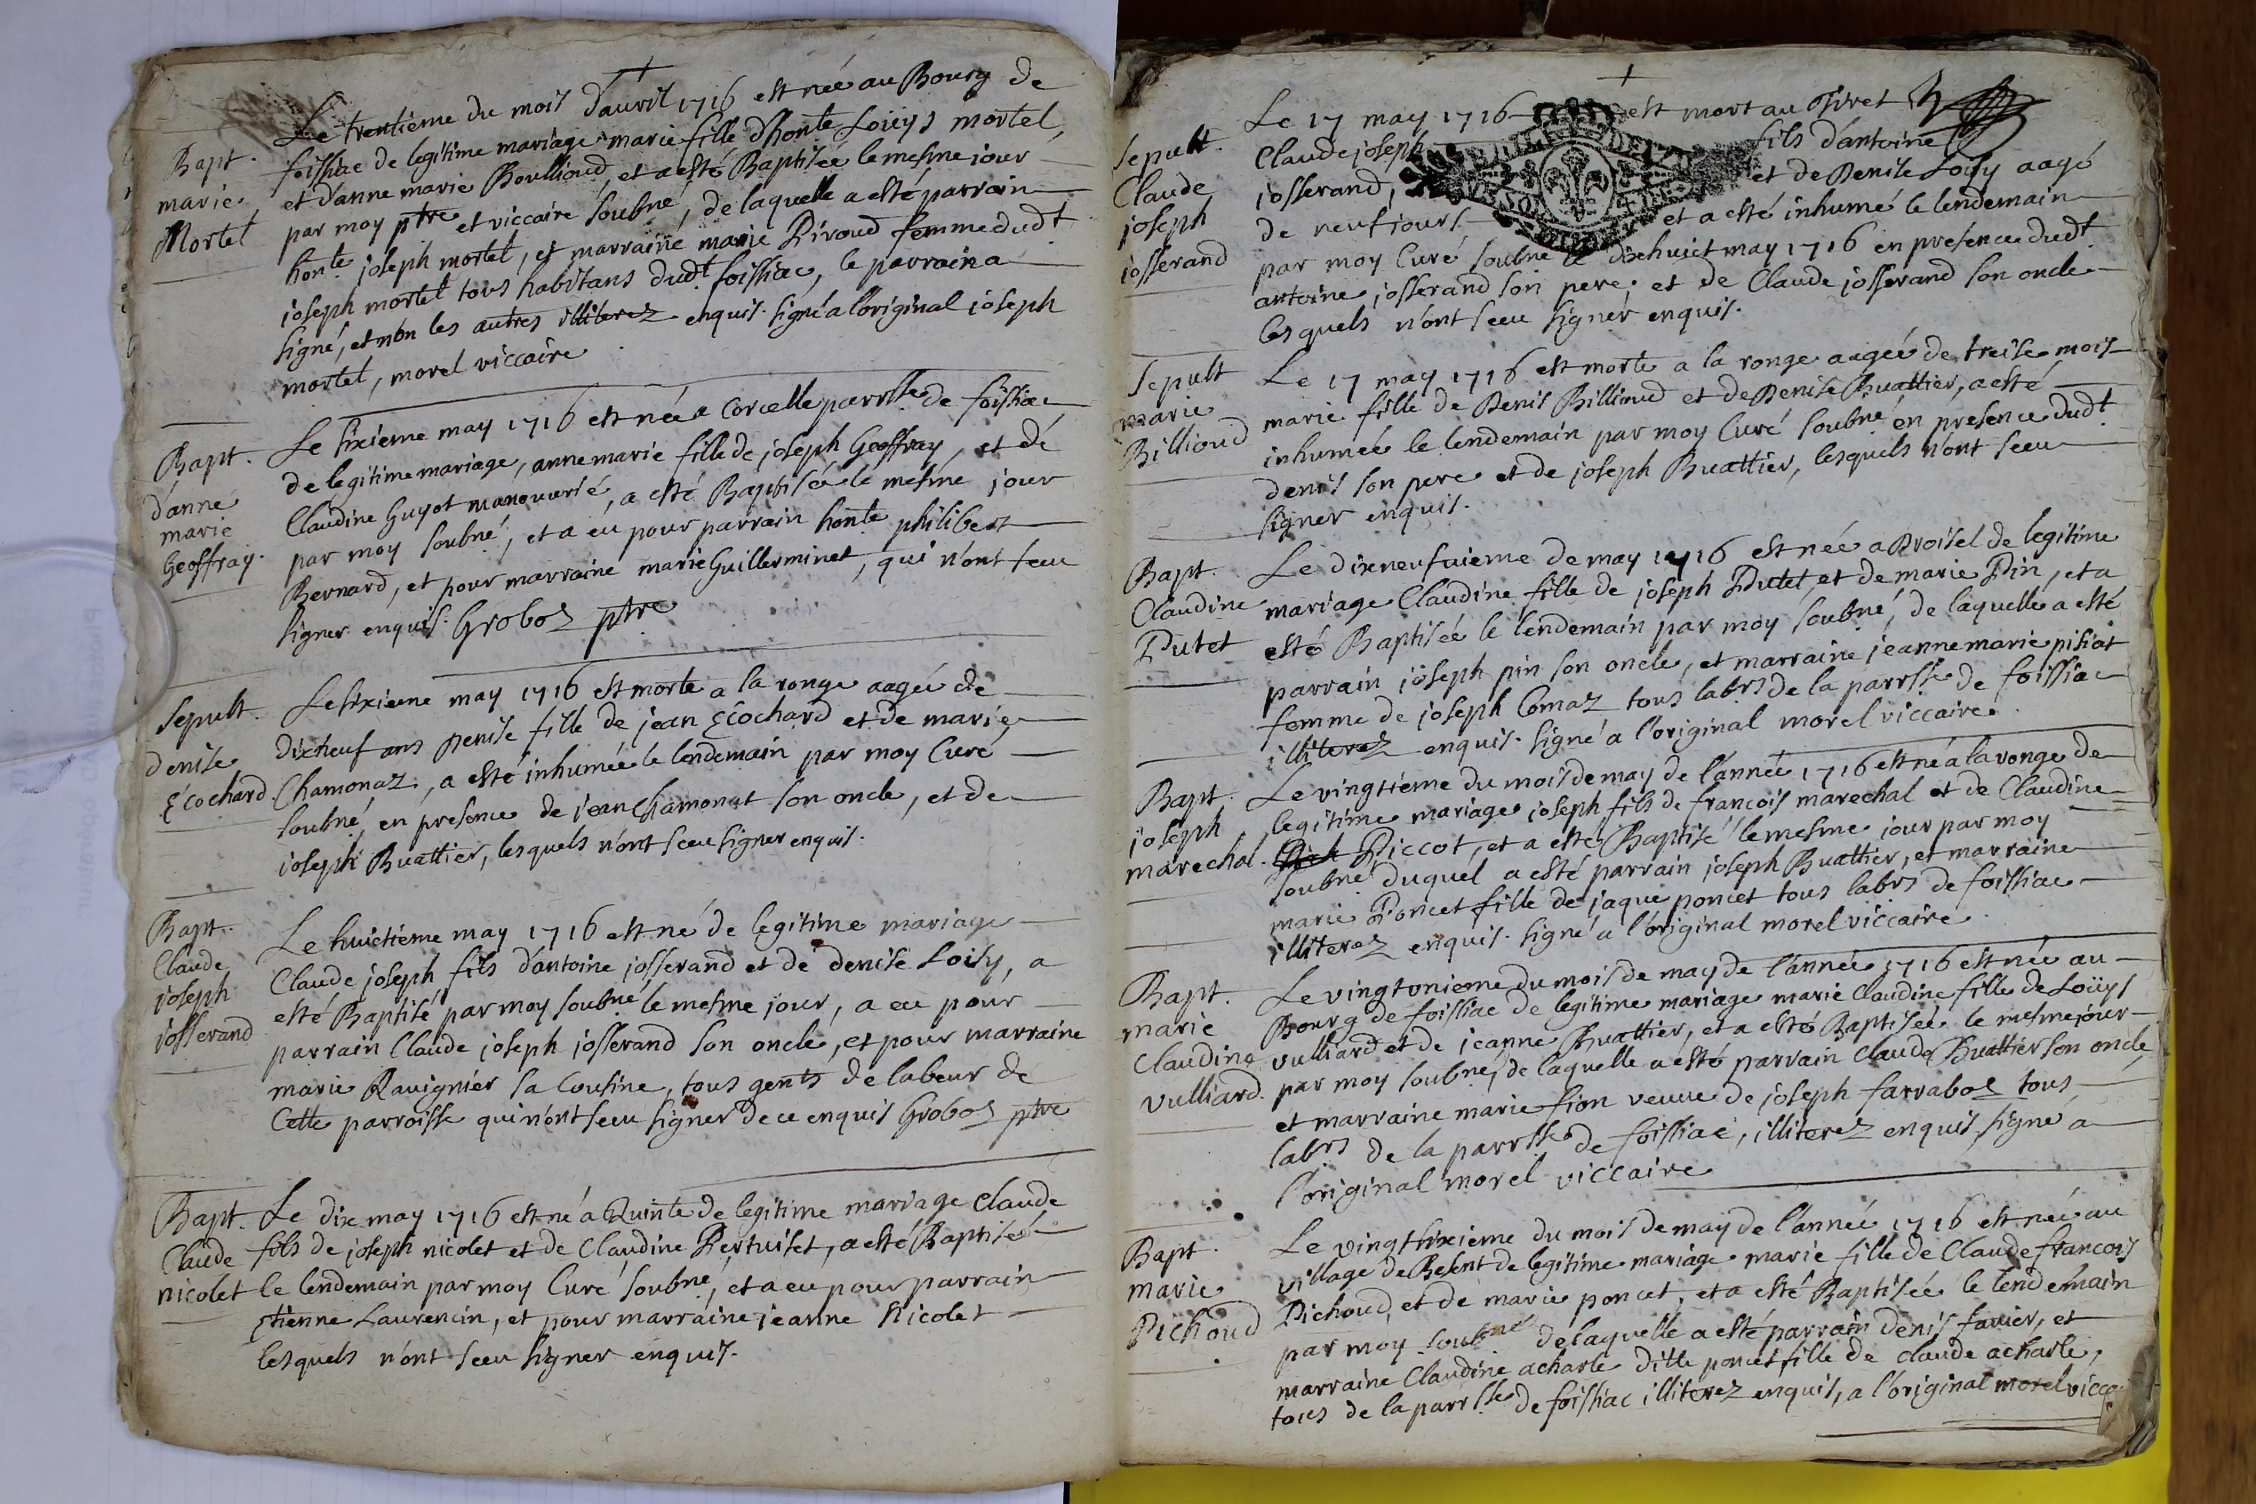 Bapt.
marie
Mortel
Le trentieme du mois d'auvril 1716 est née au Bourg de
foissiac de legitime mariage marie fille d'honte Loüys mortel,
et d'anne marie Boullioud et a esté Baptisée le mesme jour
par moy ptre et viccaire soubné, de laquelle a esté parrain
honte joseph mortel, et marrainé marie Piroud femme dudt
joseph mortel tous habitans dudt foissiac, le parrain a
signé, et non les autres illiterez enquis. signé a l'original joseph
mortel, morel viccaire
Bapt.
d'anne
marie
Geoffray.
Le sixieme may 1716 est née a Corcelle parrsse de foissiac
de legitime mariage, anne marie fille de joseph Geoffray, et de
Claudine Guyot manouvrié, a esté Baptisée le mesme jour
par moy soubné, et a eu pour parrain honte philibert
Bernard, et pour marraine marie Guilleminet, qui n'ont sceu
signer enquis. Groboz ptre
Sepult.
denise
Ecochard
Le sixieme may 1716 est morte a la ronge aagée de
dixneuf ans Denise fille de jean Ecochard et de marie
Chamonaz, a esté inhumée le lendemain par moy Curé
soubné, en presence de jean Chamonat son oncle, et de
joseph Buattier, lesquels n'ont sceu signer enquis.
Bapt.
Claude
joseph
josserand
Le huictieme may 1716 est né de legitime mariage
Claude joseph fils d'antoine josserand et de denise Loisy, a
esté Baptisé par moy soubné le mesme jour, a eu pour
parrain Claude joseph josserand son oncle, et pour marraine
marie Ravignier sa Cousine, tous gents de labeur de
Cette parroisse qui n'ont sceu signer de ce enquis Groboz ptre
Bapt.
Claude
nicolet
Le dix may 1716 est né a Quinte de legitime mariage Claude
fils de joseph nicolet et de Claudine Pertuiset, a esté Baptisé
le lendemain par moy Curé soubné, et a eu pour parrain
Etienne Laurencin, et pour marraine jeanne Nicolet
lesquels n'ont sceu signer enquis.
Sepult.
Claude
joseph
josserand
Le 17 may 1716 est mort au Tiret
Claude joseph fils d'antoine
josserand, et de Denise Loisy aagé
de neuf jours et a esté inhumé le lendemain
par moy Curé soubné le dixhuict may 1716 en presence dudt
antoine josserand son pere, et de Claude josserand son oncle
lesquels n'ont sceu signer enquis.
Sepult
marie
Billioud
Le 17 may 1716 est morte a la ronge aagée de treise mois
marie fille de Denis Billioud et de Denise Buattier, a esté
inhumée le lendemain par moy Curé soubné en presence dudt
denis son pere et de joseph Buattier, lesquels n'ont sceu
signer enquis.
Bapt.
Claudine
Putet
Le dixneufvieme de may 1716 est née a Broisel de legitime
mariage Claudine fille de joseph Putet, et de marie Pin, et a
esté Baptisée le lendemain par moy soubné, de laquelle a esté
parrain joseph pin son oncle, et marraine jeanne marie pisiat
femme de joseph Comaz tous labrs de la parrsse de foissiac
illiterez enquis. signé a l'original morel viccaire.
Bapt.
joseph
marechal.
Le vingtieme du mois de may de l'année 1716 est né a la ronge de
legitime mariage joseph fils de francois marechal et de Claudine
Piccot, et a esté Baptisé le mesme jour par moy
soubné duquel a esté parrain joseph Buattier, et marraine
marie Poncet fille de jaque poncet tous labrs de foissiac
illiterez enquis. signé a l'original morel viccaire
Bapt.
marie
Claudine
vulliard.
Le vingtunieme du mois de may de l'année 1716 est née au
Bourg de foissiac de legitime mariage marie Claudine fille de Loüys
vulliard et de jeanne Buattier, et a esté Baptisée le mesme jour
par moy soubné, de laquelle a esté parrain Claude Buattier son oncle,
et marraine marie fion veuve de joseph farraboz tous
labrs de la parrsse de foissiac, illiterez enquis, signé a
l'original morel viccaire
Bapt.
marie
Pichoud
Le vingt sixieme du mois de may de l'année 1716 est née au
village de Besent de legitime mariage marie fille de Claude francois
Pichoud, et de marie poncet, et a esté Baptisée le lendemain
par moy soubné de laquelle a esté parrain denis favier, et
marraine Claudine acharle ditte poncet fille de claude acharle,
tous de la parrsse de foissiac illiterez enquis, a l'original morel vicca